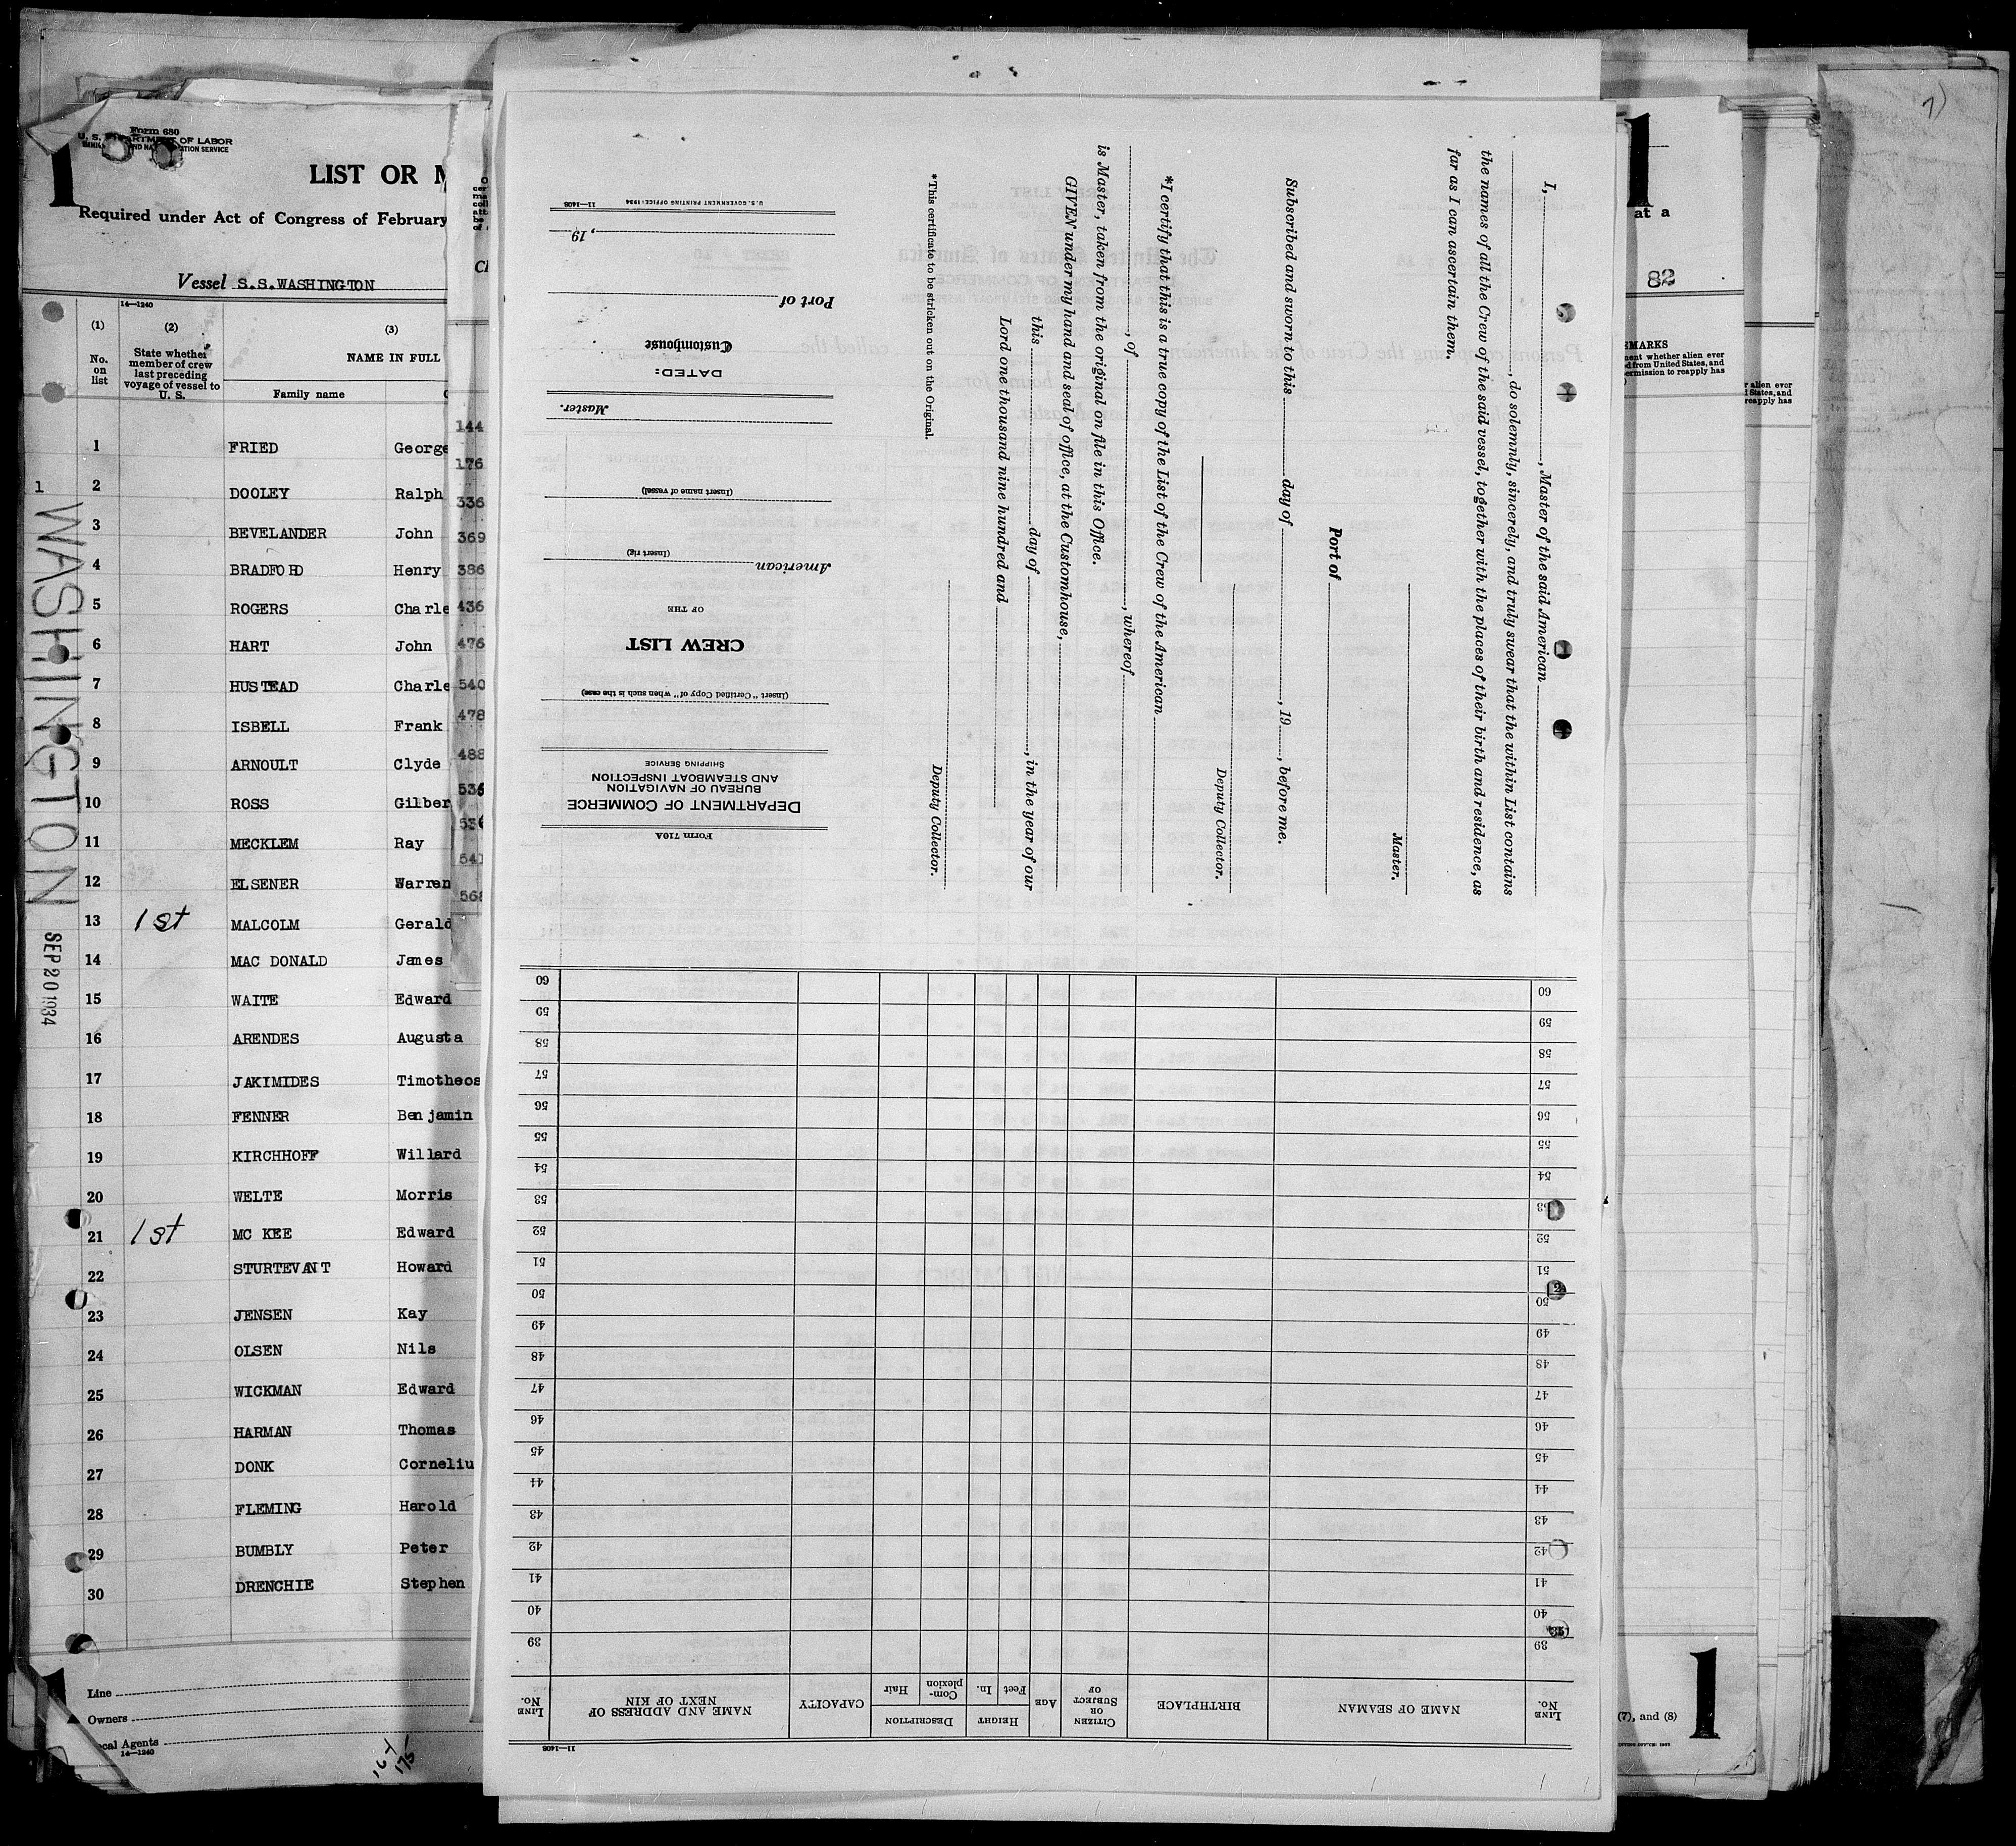 1
Form 680
U. S. DEPARTMENT OF LABOR
LIST OR M
Required under Act of Congress of February
Vessel S.S.WASHINGTON
14—1240
(1)
No.
on
list
(2)
State whether
member of crew
last preceding
voyage of vessel to
U. S.
(3)
NAME IN FULL
Family name
1 FRIED George
2 DOOLEY Ralph
3 BEVELANDER John
4 BRADFORD Henry
5 ROGERS Charle
6 HART John
7 HUSTEAD Charle
8 ISBELL Frank
9 ARNOULT Clyde
10 ROSS Gilber
11 MECKLEM Ray
12 ELSENER Warren
13 1st MALCOLM Gerald
14 MAC DONALD James
15 WAITE Edward
16 ARENDES Augusta
17 JAKIMIDES Timotheos
18 FENNER Benjamin
19 KIRCHHOFF Willard
20 WELTE Morris
21 1st MC KEE Edward
22 STURTEVANT Howard
23 JENSEN Kay
24 OLSEN Nils
25 WICKMAN Edward
26 HARMAN Thomas
27 DONK Corneliu
28 FLEMING Harold
29 BUMBLY Peter
30 DRENCHIE Stephen
1
WASHINGTON
SEP 20 1934
Line
Owners
Local Agents
14—1240
144
176
336
369
386
436
476
540
478
488
536
536
541
568
I, , Master of the said American
, do solemnly, sincerely, and truly swear that the within List contains
the names of all the Crew of the said vessel, together with the places of their birth and residence, as
far as I can ascertain them.
Master.
Port of
Subscribed and sworn to this day of , 19 , before me.
Deputy Collector.
*I certify that this is a true copy of the List of the Crew of the American
, of , whereof
is Master, taken from the original on file in this Office.
GIVEN under my hand and seal of office, at the Customhouse,
this day of , in the year of our
Lord one thousand nine hundred and
Deputy Collector.
*This certificate to be stricken out on the Original.
Form 710A
DEPARTMENT OF COMMERCE
BUREAU OF NAVIGATION
AND STEAMBOAT INSPECTION
SHIPPING SERVICE
(Insert "Certified Copy of" when such is the case)
CREW LIST
OF THE
American
(Insert rig)
(Insert name of vessel)
Master.
DATED:
Customhouse
Port of
, 19
U.S. GOVERNMENT PRINTING OFFICE: 1934
11—1408
11—1408
LINE No.
NAME OF SEAMAN
BIRTHPLACE
CITIZEN OR SUBJECT OF
AGE
HEIGHT
Feet In.
DESCRIPTION
Complexion Hair
CAPACITY
NAME AND ADDRESS OF NEXT OF KIN
LINE No.
39 39
40 40
41 41
42 42
43 43
44 44
45 45
46 46
47 47
48 48
49 49
50 50
51 51
52 52
53 53
54 54
55 55
56 56
57 57
58 58
59 59
60 60
1
at a
82
EMARKS
ent whether alien ever
d from United States, and
ermission to reapply has
r alien ever
d States, and
reapply has
(7), and (8)
1